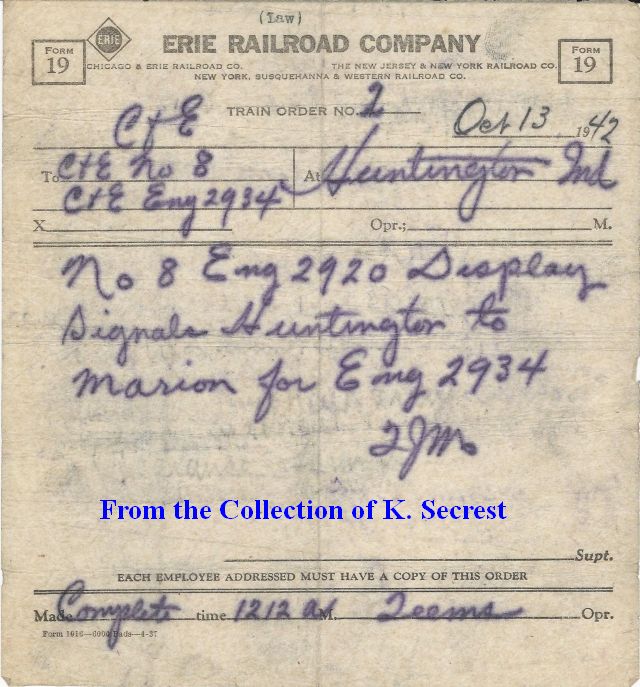 (Law)
FORM 19
ERIE
ERIE RAILROAD COMPANY
FORM 19
CHICAGO & ERIE RAILROAD CO. THE NEW JERSEY & NEW YORK RAILROAD CO.
NEW YORK, SUSQUEHANNA & WESTERN RAILROAD CO.
TRAIN ORDER NO. 2
C & E
Oct 13 1942
To C&E No 8 At Huntington Ind
C&E Eng 2934
X Opr.; M.
No 8 Eng 2920 Display
Signals Huntington to
Marion for Eng 2934
From the Collection of K. Secrest
Supt.
EACH EMPLOYEE ADDRESSED MUST HAVE A COPY OF THIS ORDER
Made Complete time 1212 AM. Teems Opr.
Form 1016—6000 Pads—4-37